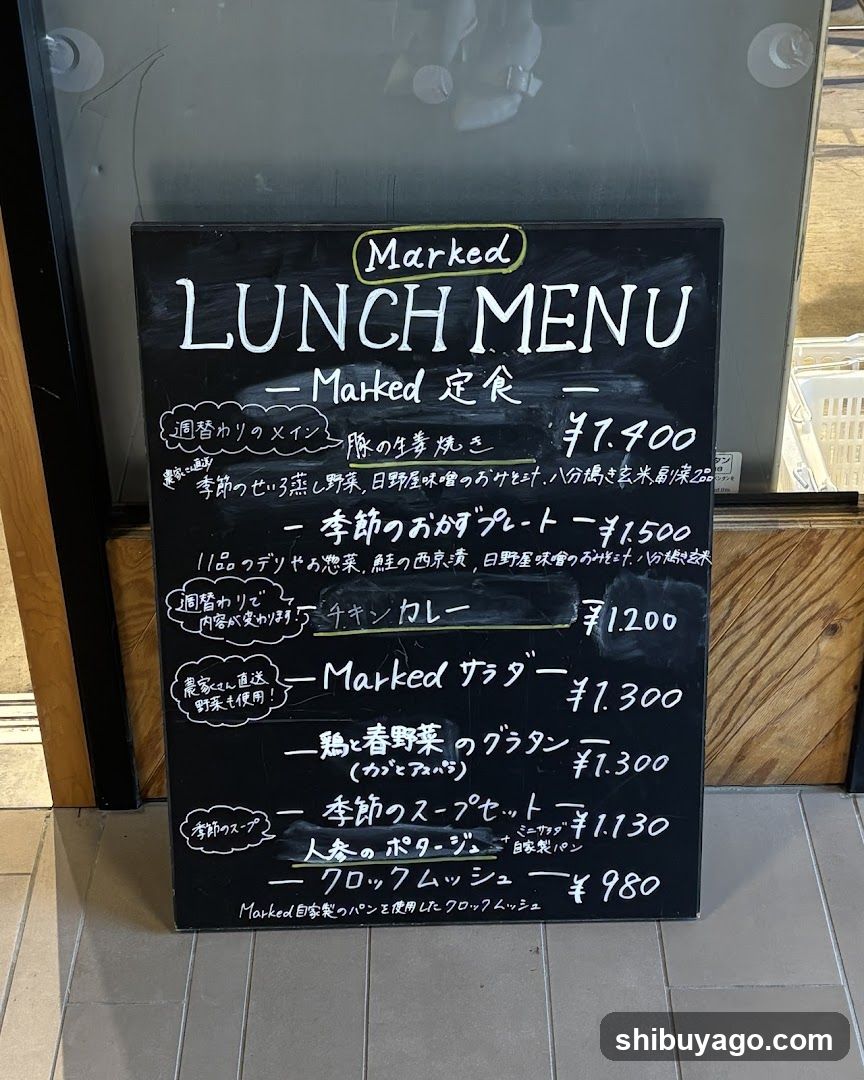 Marked
LUNCH MENU
— Marked 定食 —
週替わりのメイン 豚の生姜焼き ¥1.400
農家さん直送 季節のせいろ蒸し野菜, 日野屋味噌のおみそ汁, 八分搗き玄米, 副菜2品
— 季節のおかずプレート — ¥1.500
11品のデリやお惣菜, 鮭の西京漬, 日野屋味噌のおみそ汁, 八分搗き玄米
週替わりで
内容が変わります! — チキンカレー ¥1.200
農家さん直送
野菜も使用! — Marked サラダ — ¥1.300
— 鶏と春野菜のグラタン — ¥1.300
(カブとアスパラ)
— 季節のスープセット — ¥1.130
季節のスープ 人参のポタージュ + ミニサラダ
自家製パン
— クロックムッシュ — ¥980
Marked自家製のパンを使用したクロックムッシュ
shibuyago.com